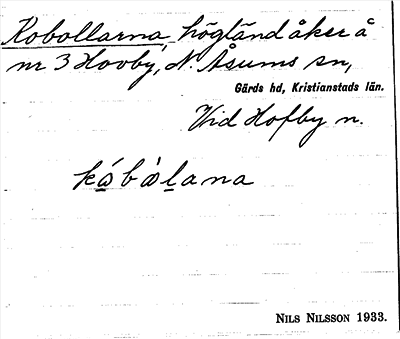 Kobollarna, högländ åker å
nr 3 Hovby, N. Åsums sn,
Gärds hd, Kristianstads län.
Vid Hofby n.
kåbålana
NILS NILSSON 1933.